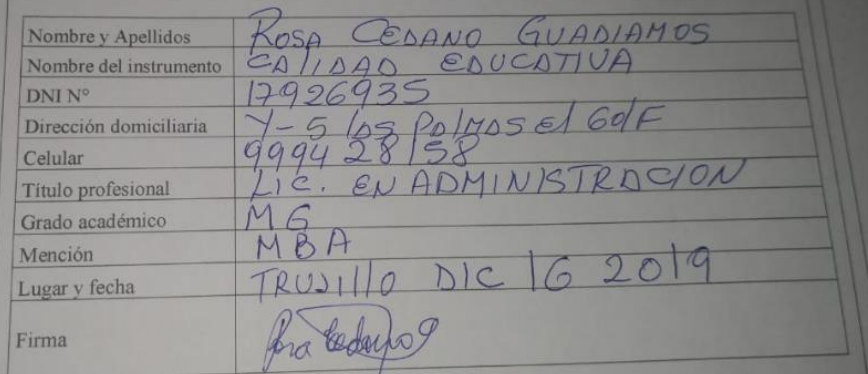 Nombre y Apellidos ROSA CEDANO GUADIAMOS
Nombre del instrumento CALIDAD EDUCATIVA
DNI N° 17926935
Dirección domiciliaria Y-5 los Palmas el Golf
Celular 999428158
Título profesional LIC. EN ADMINISTRACION
Grado académico MG
Mención MBA
Lugar y fecha TRUJIllO DIC 16 2019
Firma Rosa Cedano G